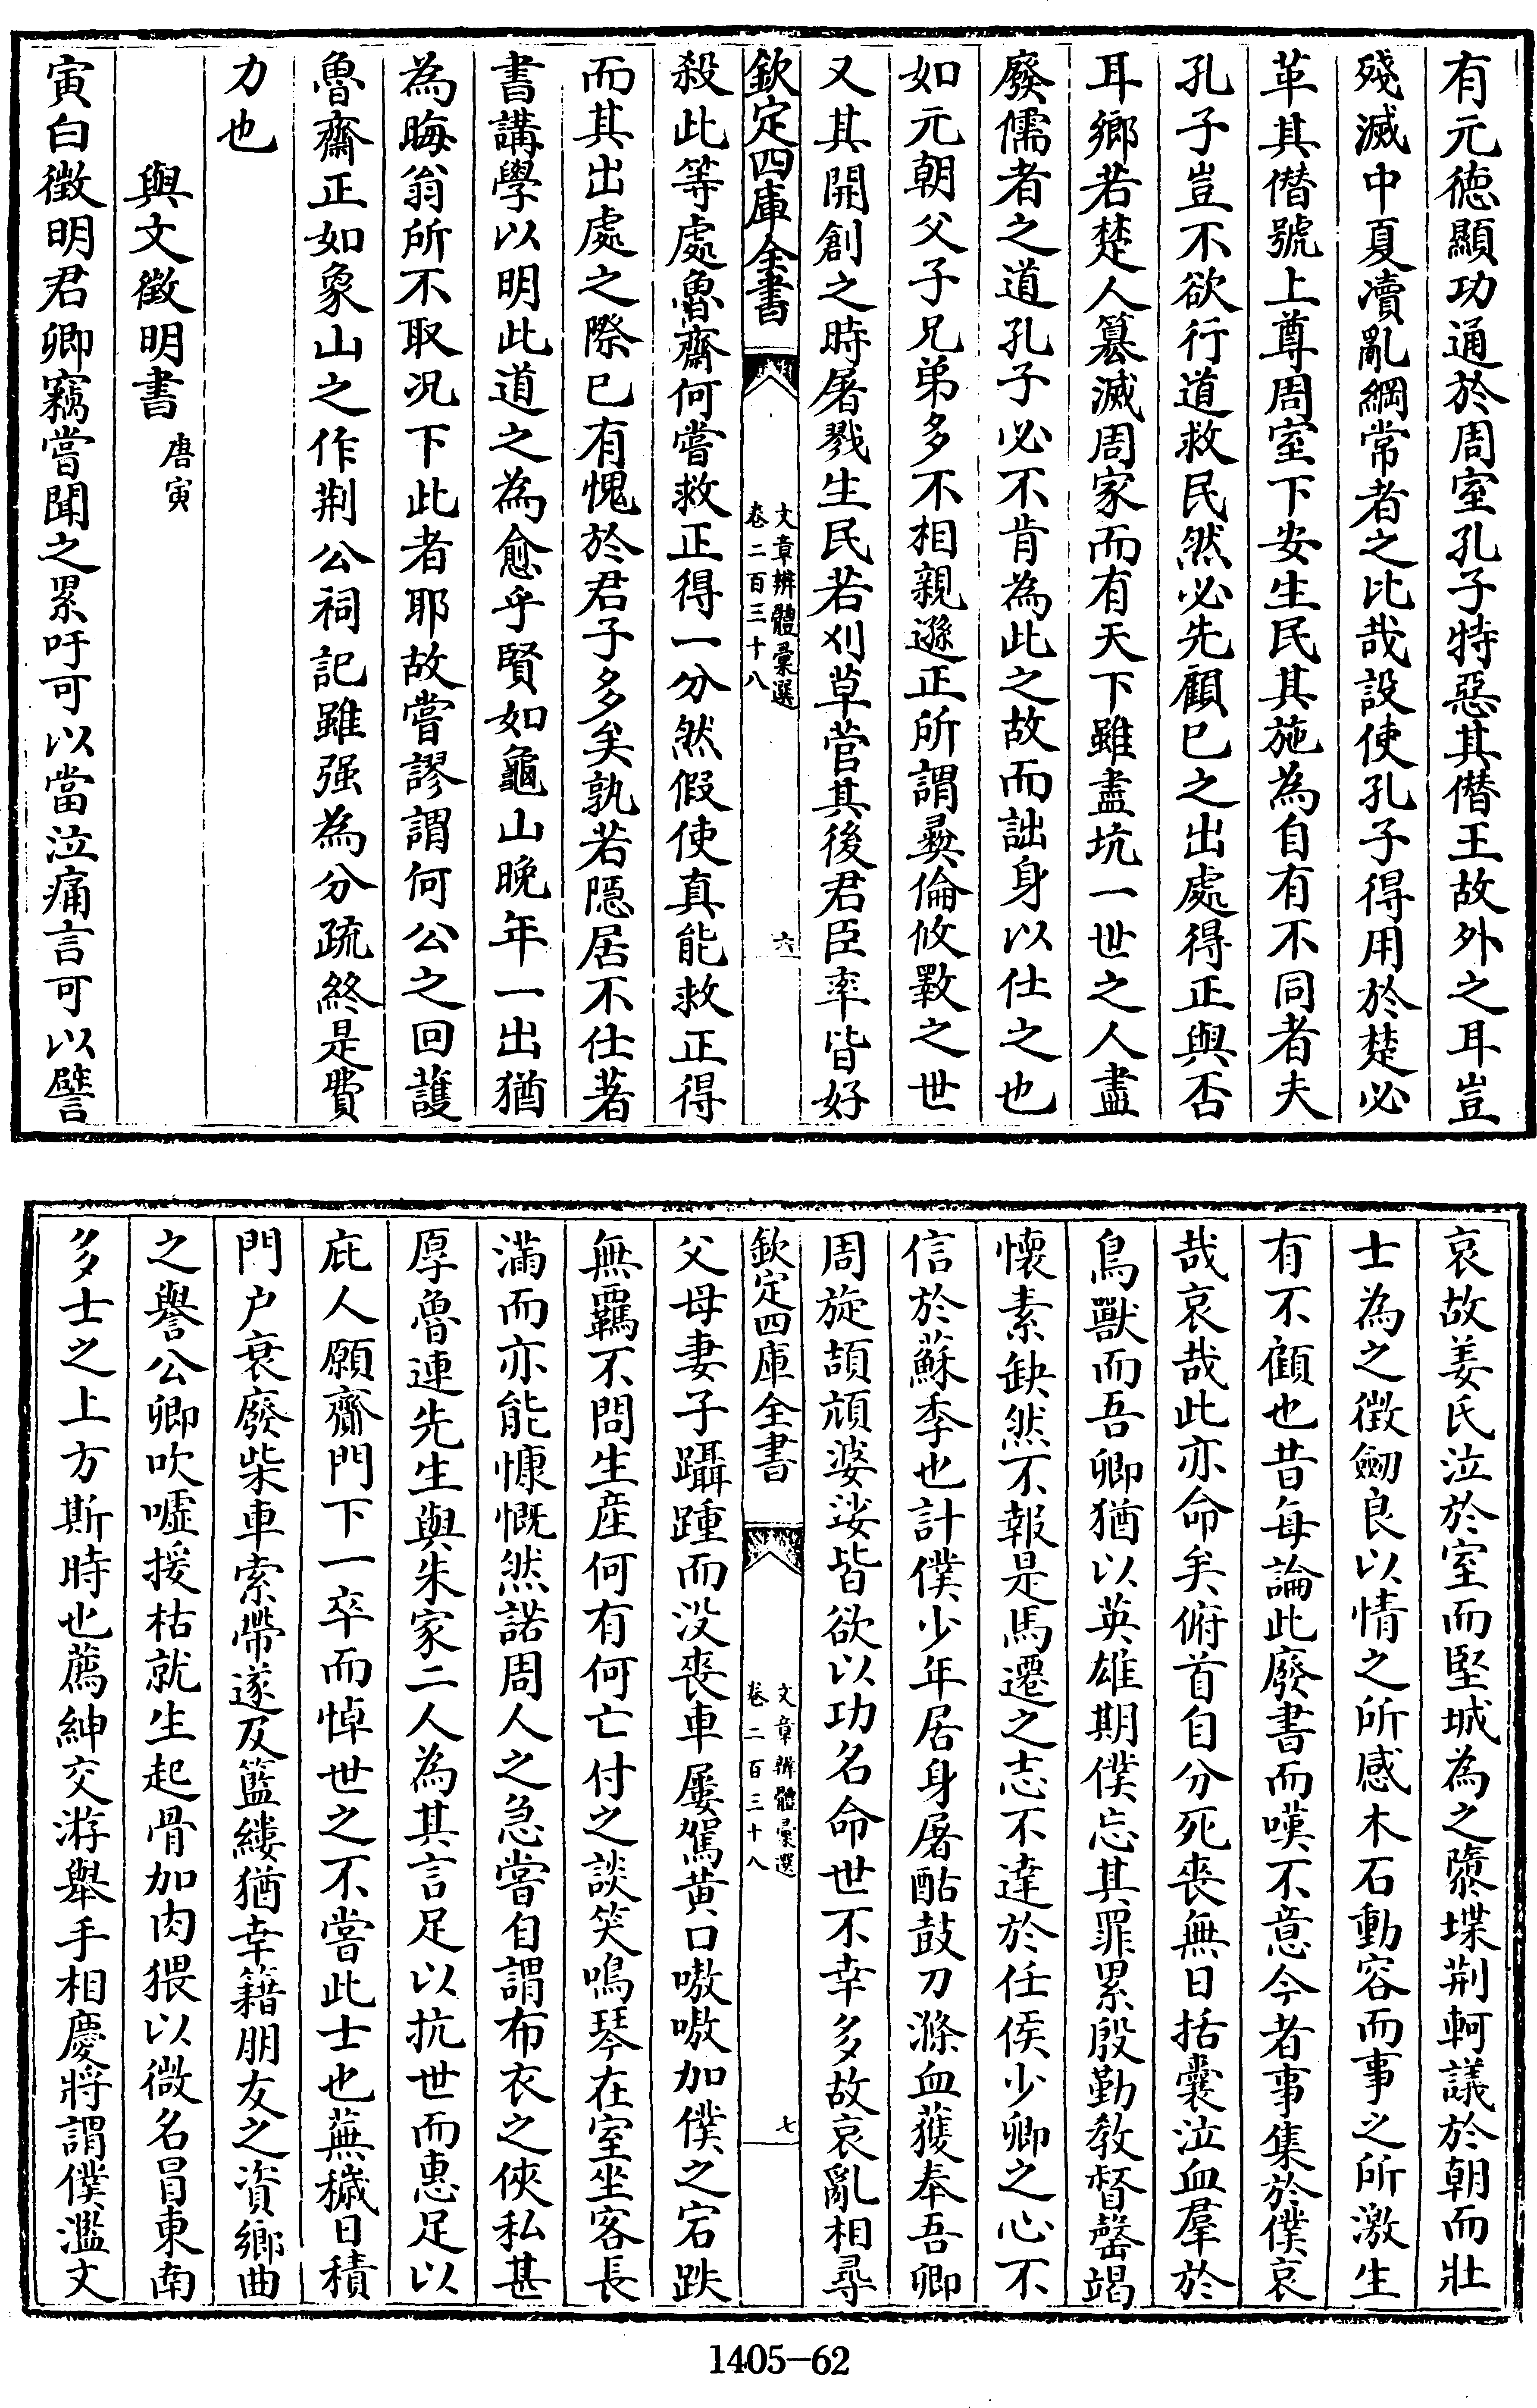 有元徳顯功通於周室孔子特惡其僭王故外之耳豈
殘滅中夏瀆亂綱常者之比哉設使孔子得用於楚必
革其僭號上尊周室下安生民其施為自有不同者夫
孔子豈不欲行道救民然必先顧已之出處得正與否
耳鄉若楚人簒滅周家而有天下雖盡坑一世之人盡
廢儒者之道孔子必不肯為此之故而詘身以仕之也
如元朝父子兄弟多不相親遜正所謂彞倫攸斁之世
又其開創之時屠戮生民若刈草菅其後君臣率皆好
欽定四庫全書
文章辨體彚選
卷二百三十八
六
殺此等處魯齋何嘗救正得一分然假使真能救正得
而其出處之際已有愧於君子多矣孰若隱居不仕著
書講學以明此道之為愈乎賢如龜山晚年一出猶
為晦翁所不取况下此者耶故嘗謬謂何公之回護
魯齋正如象山之作荆公祠記雖强為分疏終是費
力也
與文徵明書 唐寅
寅白徵明君卿竊嘗聞之累吁可以當泣痛言可以譬
哀故姜氏泣於室而堅城為之隳堞荆軻議於朝而壯
士為之徵劒良以情之所感木石動容而事之所激生
有不顧也昔每論此廢書而嘆不意今者事集於僕哀
哉哀哉此亦命矣俯首自分死喪無日括囊泣血羣於
鳥獸而吾卿猶以英雄期僕忘其罪累殷勤教督罄竭
懷素缺然不報是馬遷之志不達於任侯少卿之心不
信於蘇季也計僕少年居身屠酤鼓刀滌血獲奉吾卿
周旋頡頏婆娑皆欲以功名命世不幸多故哀亂相尋
欽定四庫全書
文章辨體彚選
卷二百三十八
七
父母妻子躡踵而没喪車屢駕黄口嗷嗷加僕之宕跌
無羈不問生産何有何亡付之談笑鳴琴在室坐客長
滿而亦能慷慨然諾周人之急嘗自謂布衣之俠私甚
厚魯連先生與朱家二人為其言足以抗世而惠足以
庇人願齋門下一卒而悼世之不嘗此士也蕪穢日積
門户衰廢柴車索帶遂及籃縷猶幸籍朋友之資鄉曲
之譽公卿吹噓援枯就生起骨加肉猥以微名冒東南
多士之上方斯時也薦紳交游舉手相慶將謂僕濫文
1405-62